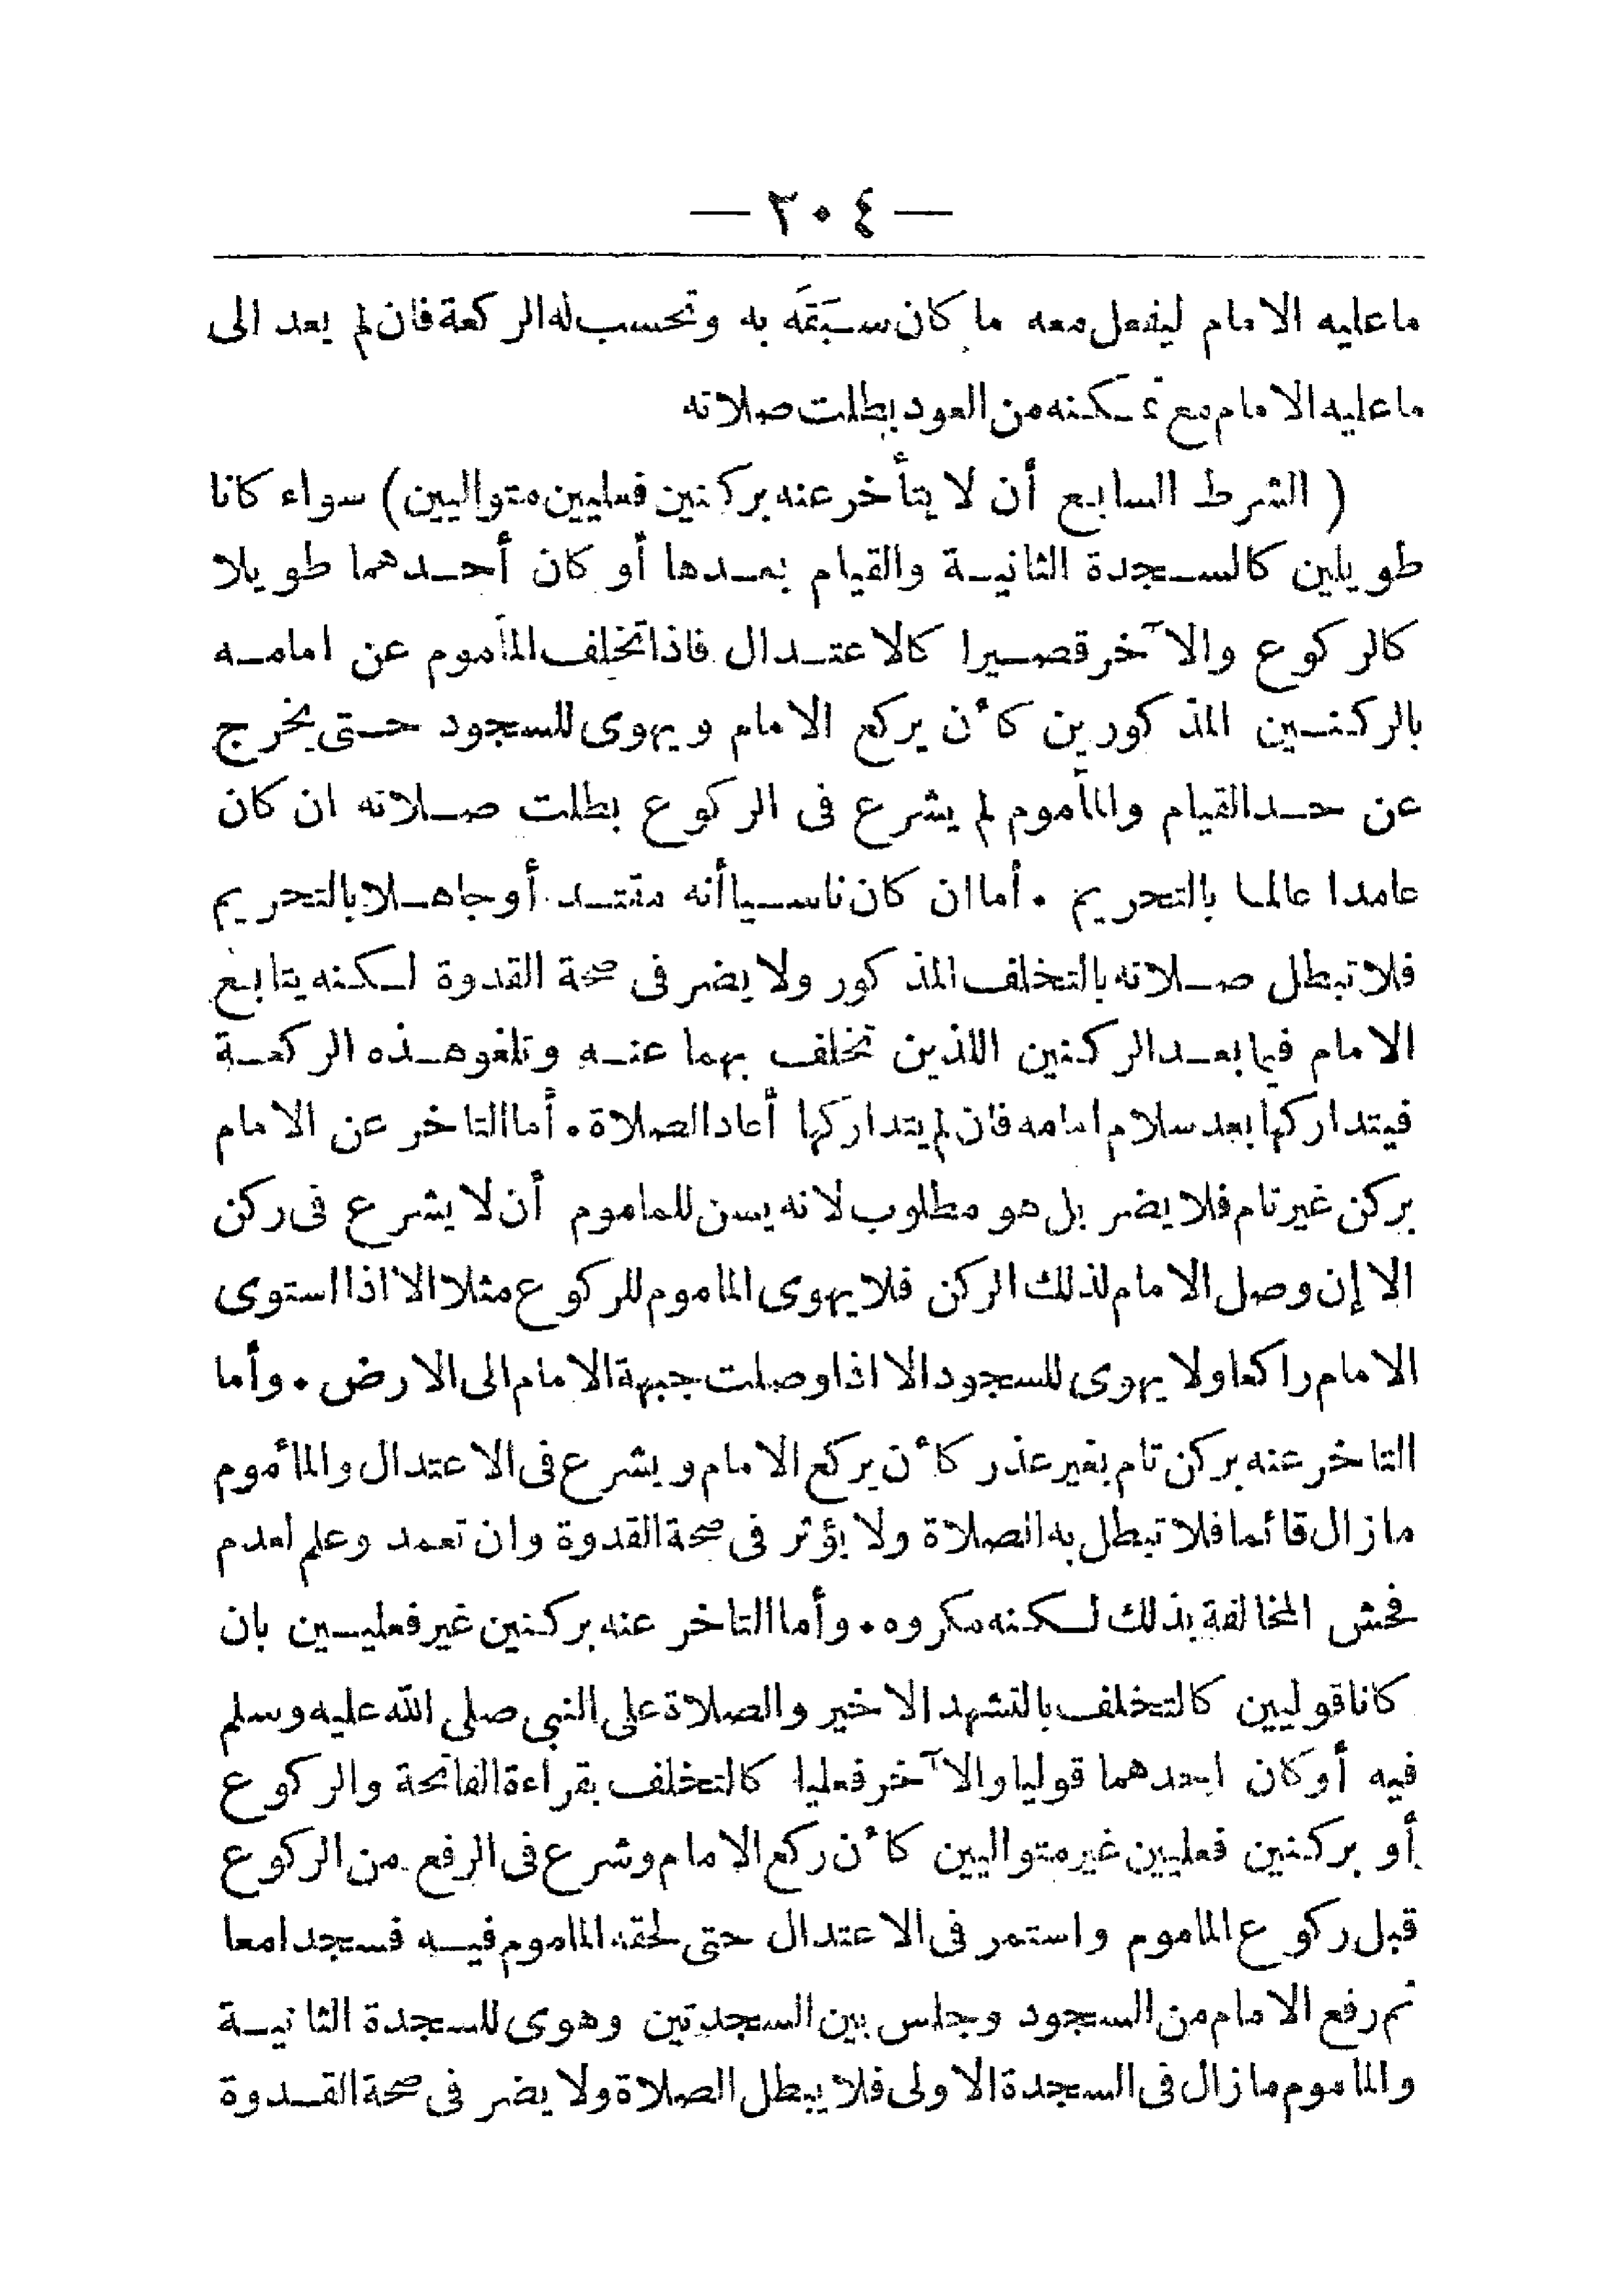 — ٣٠٤ —
ما عليه الامام ليفعل معه ما كان سبَقَه به وتحسب له الركعة فان لم يعد الى
ما عليه الامام مع تمكنه من العود بطلت صلاته
( الشرط السابع أن لا يتأخر عنه بركنين فعليين متواليين ) سواء كانا
طويلين كالسجدة الثانية والقيام بعدها أو كان أحدهما طويلا
كالركوع والآخر قصيرا كالاعتدال فاذا تخلف المأموم عن امامه
بالركنين المذكورين كأن يركع الامام ويهوى للسجود حتى يخرج
عن حد القيام والمأموم لم يشرع فى الركوع بطلت صلاته ان كان
عامدا عالما بالتحريم . أما ان كان ناسيا أنه مقتد أو جاهلا بالتحريم
فلا تبطل صلاته بالتخلف المذكور ولا يضر فى صحة القدوة لكنه يتابع
الامام فيما بعد الركنين اللذين تخلف بهما عنه وتلغو هذه الركعة
فيتداركها بعد سلام امامه فان لم يتداركها أعاد الصلاة . أما التاخر عن الامام
بركن غير تام فلا يضر بل هو مطلوب لانه يسن للماموم أن لا يشرع فى ركن
الا إن وصل الامام لذلك الركن فلا يهوى الماموم للركوع مثلا الا اذا استوى
الامام راكعا ولا يهوى للسجود الا اذا وصلت جبهة الامام الى الارض . وأما
التاخر عنه بركن تام بغير عذر كأن يركع الامام ويشرع فى الاعتدال والمأموم
ما زال قائما فلا تبطل به الصلاة ولا يؤثر فى صحة القدوة وان تعمد وعلم لعدم
فحش المخالفة بذلك لكنه مكروه . وأما التاخر عنه بركنين غير فعليين بان
كانا قوليين كالتخلف بالتشهد الاخير والصلاة على النبى صلى الله عليه وسلم
فيه أو كان احدهما قوليا والآخر فعليا كالتخلف بقراءة الفاتحة والركوع
أو بركنين فعليين غير متواليين كأن ركع الامام وشرع فى الرفع من الركوع
قبل ركوع الماموم واستمر فى الاعتدال حتى لحقه الماموم فيه فسجدا معا
ثم رفع الامام من السجود وجلس بين السجدتين وهوى للسجدة الثانية
والماموم ما زال فى السجدة الاولى فلا يبطل الصلاة ولا يضر فى صحة القدوة